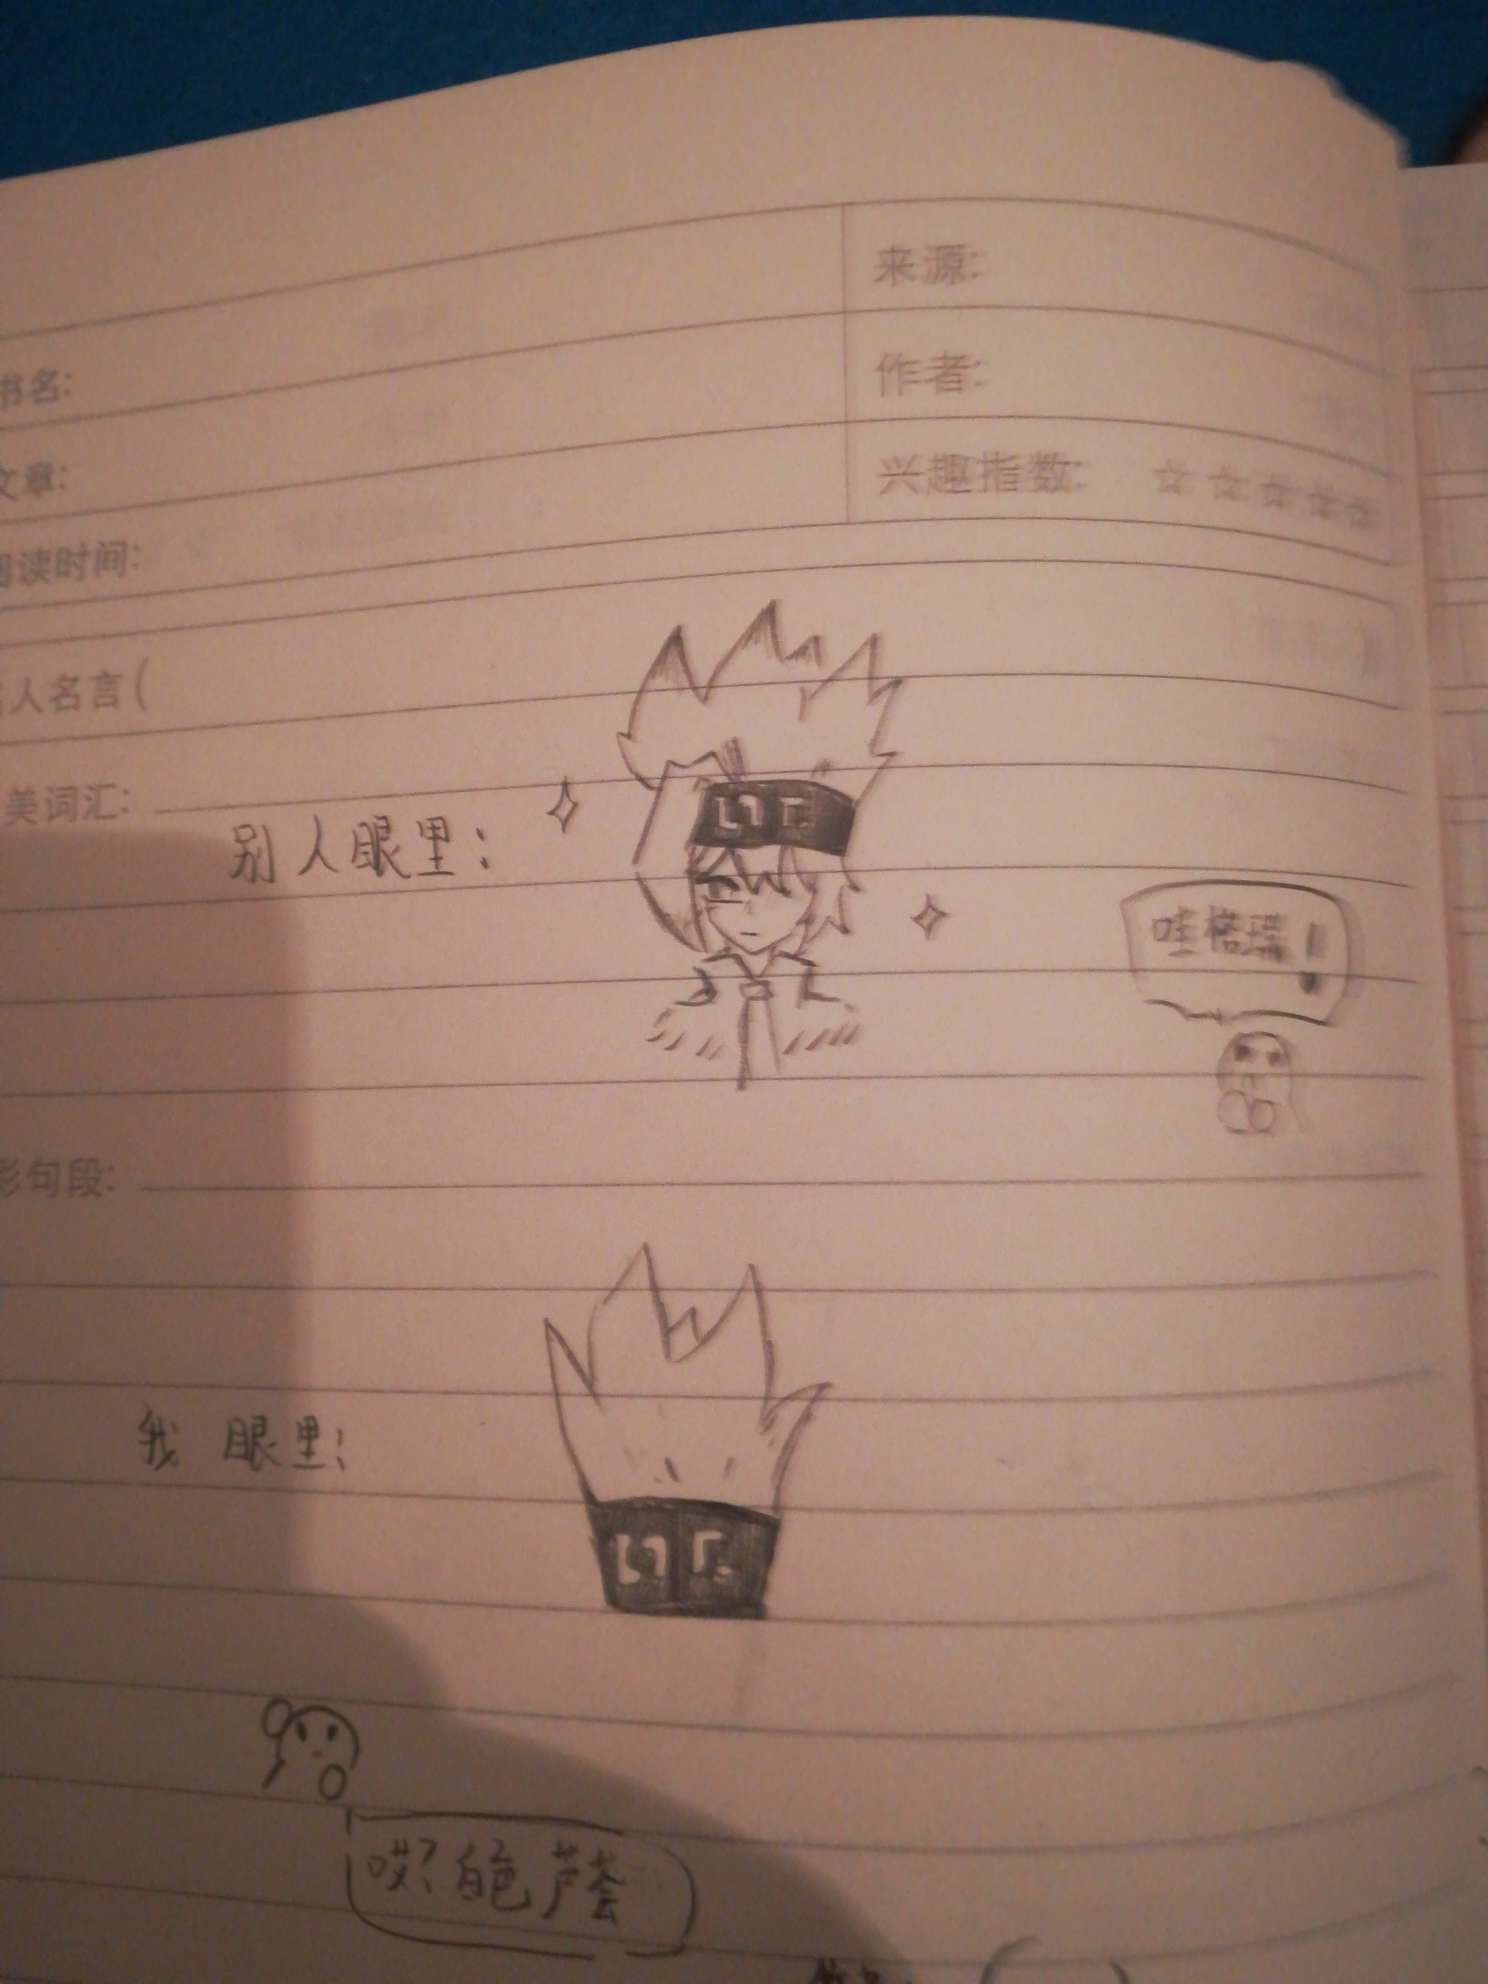 来源:
书名:
作者:
文章:
兴趣指数: ☆☆☆☆☆
阅读时间:
名人名言(
美词汇:
别人眼里:
哇 格瑞!
彩句段:
我 眼里:
哎? 白色芦荟